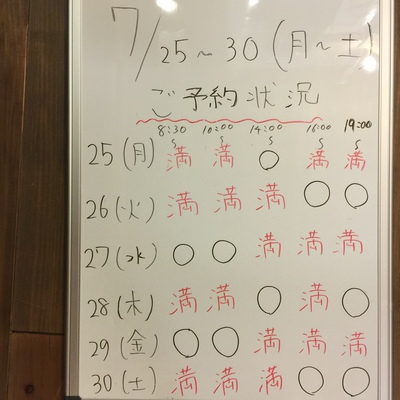 7/25~30(月~土)
ご予約状況
8:30~ 10:00~ 14:00~ 16:00~ 19:00~
25(月) 満 満 ○ 満 満
26(火) 満 満 満 ○ ○
27(水) ○ ○ 満 満 満
28(木) 満 満 ○ 満 ○
29(金) ○ ○ 満 満 満
30(土) 満 満 満 ○ ○